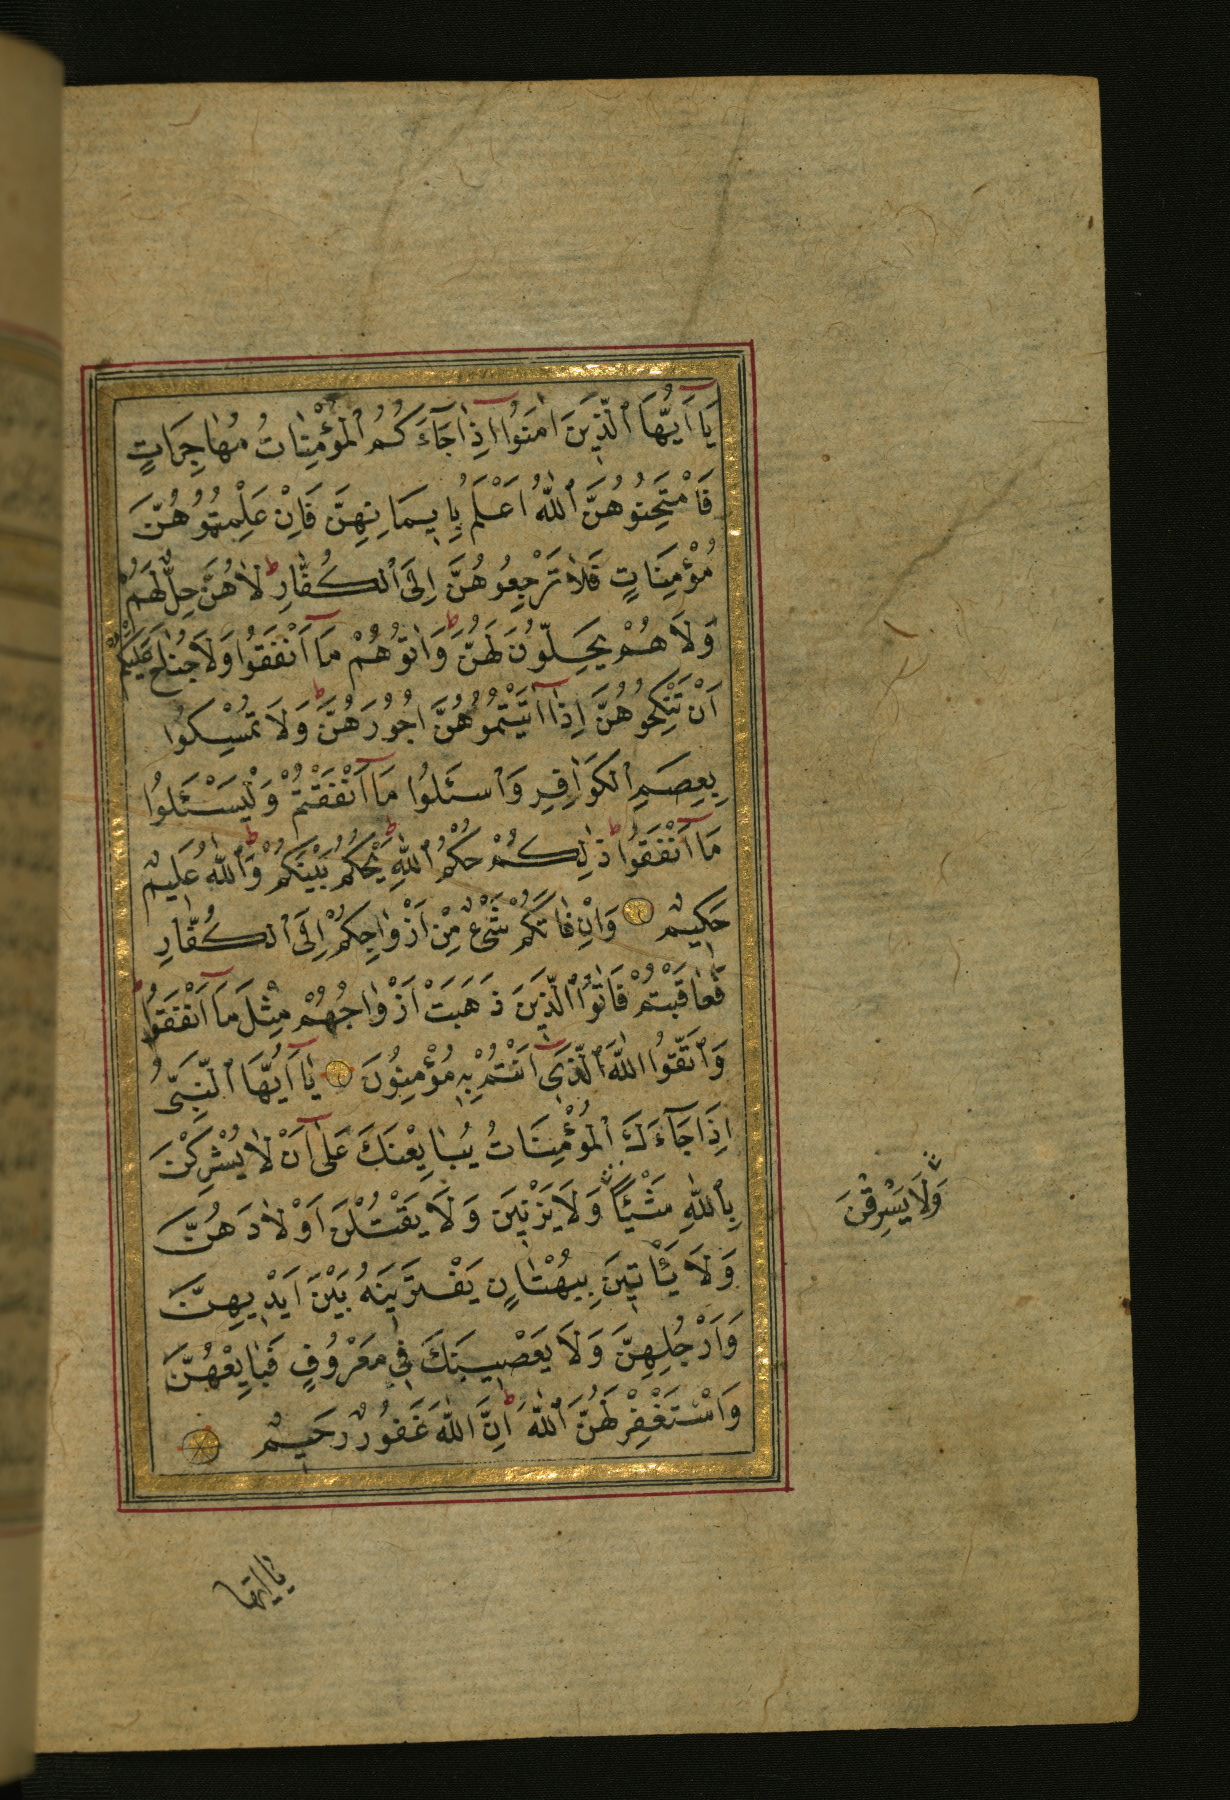 يَا أَيُّهَا ٱلَّذِينَ اٰمَنُوا اِذَا جَاءَكُمُ ٱلْمُؤْمِنَاتُ مُهَاجِرَاتٍ
فَامْتَحِنُوهُنَّ ٱللّٰهُ اَعْلَمُ بِاِيمَانِهِنَّ فَاِنْ عَلِمْتُمُوهُنَّ
مُؤْمِنَاتٍ فَلَا تَرْجِعُوهُنَّ اِلَى ٱلْكُفَّارِ ط لَا هُنَّ حِلٌّ لَهُمْ
وَلَا هُمْ يَحِلُّونَ لَهُنَّ ط وَاٰتُوهُمْ مَا اَنْفَقُوا وَلَا جُنَاحَ عَلَيْكُمْ
اَنْ تَنْكِحُوهُنَّ اِذَا اٰتَيْتُمُوهُنَّ اُجُورَهُنَّ ط وَلَا تُمْسِكُوا
بِعِصَمِ ٱلْكَوَافِرِ وَٱسْئَلُوا مَا اَنْفَقْتُمْ وَلْيَسْئَلُوا
مَا اَنْفَقُوا ط ذٰلِكُمْ حُكْمُ ٱللّٰهِ ط يَحْكُمُ بَيْنَكُمْ ط وَٱللّٰهُ عَلِيمٌ
حَكِيمٌ وَاِنْ فَاتَكُمْ شَىْءٌ مِنْ اَزْوَاجِكُمْ اِلَى ٱلْكُفَّارِ
فَعَاقَبْتُمْ فَاٰتُوا ٱلَّذِينَ ذَهَبَتْ اَزْوَاجُهُمْ مِثْلَ مَا اَنْفَقُوا
وَٱتَّقُوا اللّٰهَ ٱلَّذِى اَنْتُمْ بِهِ مُؤْمِنُونَ يَا اَيُّهَا ٱلنَّبِىُّ
اِذَا جَاءَكَ ٱلْمُؤْمِنَاتُ يُبَايِعْنَكَ عَلٰى اَنْ لَا يُشْرِكْنَ
بِٱللّٰهِ شَيْئًا وَلَا يَزْنِينَ وَلَا يَقْتُلْنَ اَوْلَادَهُنَّ
وَلَا يَسْرِقْنَ
وَلَا يَأْتِينَ بِبُهْتَانٍ يَفْتَرِينَهُ بَيْنَ اَيْدِيهِنَّ
وَاَرْجُلِهِنَّ وَلَا يَعْصِينَكَ فِى مَعْرُوفٍ فَبَايِعْهُنَّ
وَاسْتَغْفِرْ لَهُنَّ ٱللّٰهَ ط اِنَّ اللّٰهَ غَفُورٌ رَحِيمٌ
يا ايها